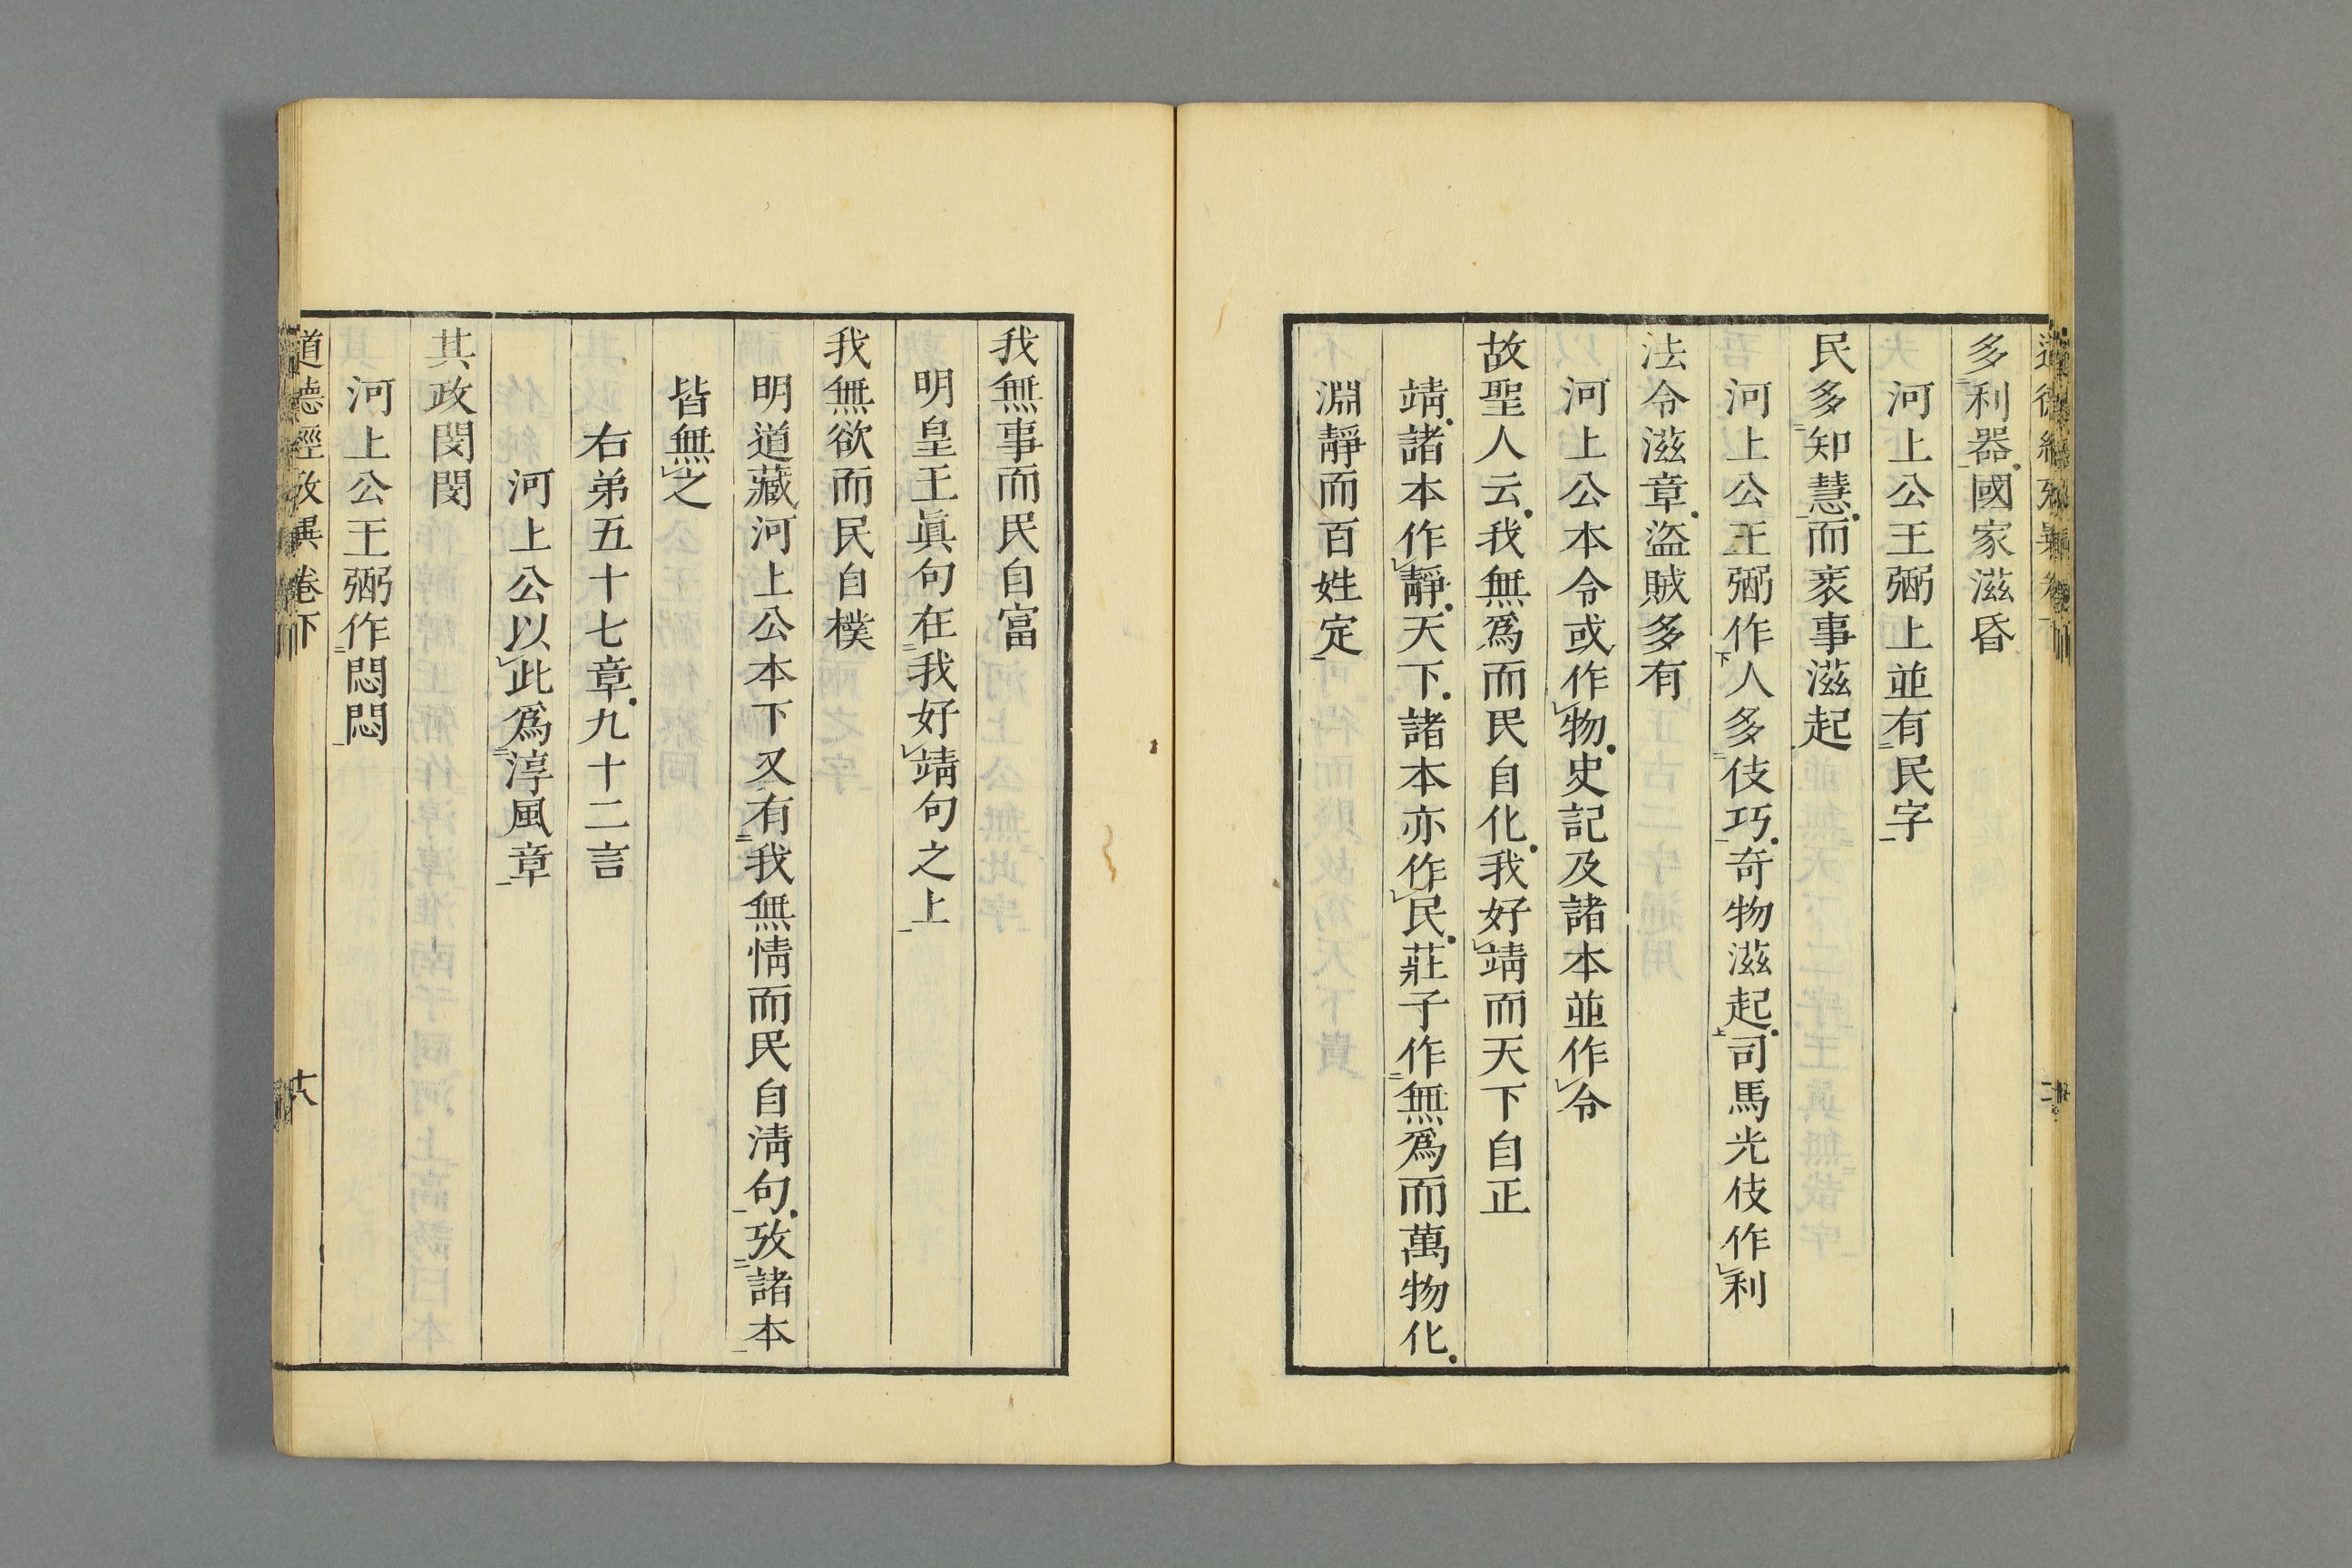 多利器國家滋昏
河上公王弼上並有民字
民多知慧而衺事滋起
河上公王弼作人多伎巧奇物滋起司馬光伎作利
法令滋章盜賊多有
河上公本令或作物史記及諸本並作令
故聖人云我無爲而民自化我好靖而天下自正
靖諸本作靜天下諸本亦作民莊子作無爲而萬物化
淵靜而百姓定
我無事而民自富
明皇王眞句在我好靖句之上
我無欲而民自樸
明道藏河上公本下又有我無情而民自淸句攷諸本
皆無之
右弟五十七章九十二言
河上公以此爲淳風章
其政閔閔
河上公王弼作悶悶
道德經攷異卷下
十八